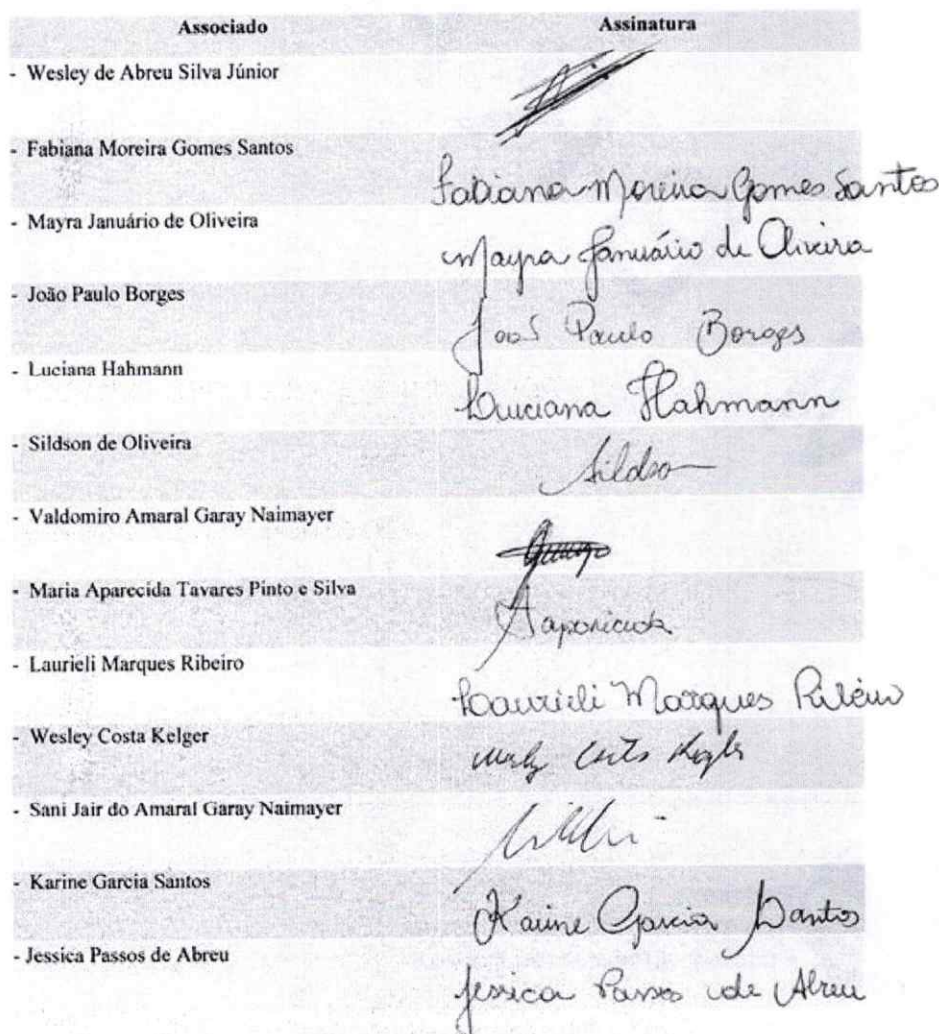 Associado Assinatura
- Wesley de Abreu Silva Júnior
- Fabiana Moreira Gomes Santos
Fabiana Moreira Gomes Santos
- Mayra Januário de Oliveira
Mayra Januário de Oliveira
- João Paulo Borges
João Paulo Borges
- Luciana Hahmann
Luciana Hahmann
- Sildson de Oliveira
Sildson
- Valdomiro Amaral Garay Naimayer
- Maria Aparecida Tavares Pinto e Silva
Aparecida
- Laurieli Marques Ribeiro
Laurieli Marques Ribeiro
- Wesley Costa Kelger
- Sani Jair do Amaral Garay Naimayer
- Karine Garcia Santos
Karine Garcia Santos
- Jessica Passos de Abreu
Jessica Passos de Abreu